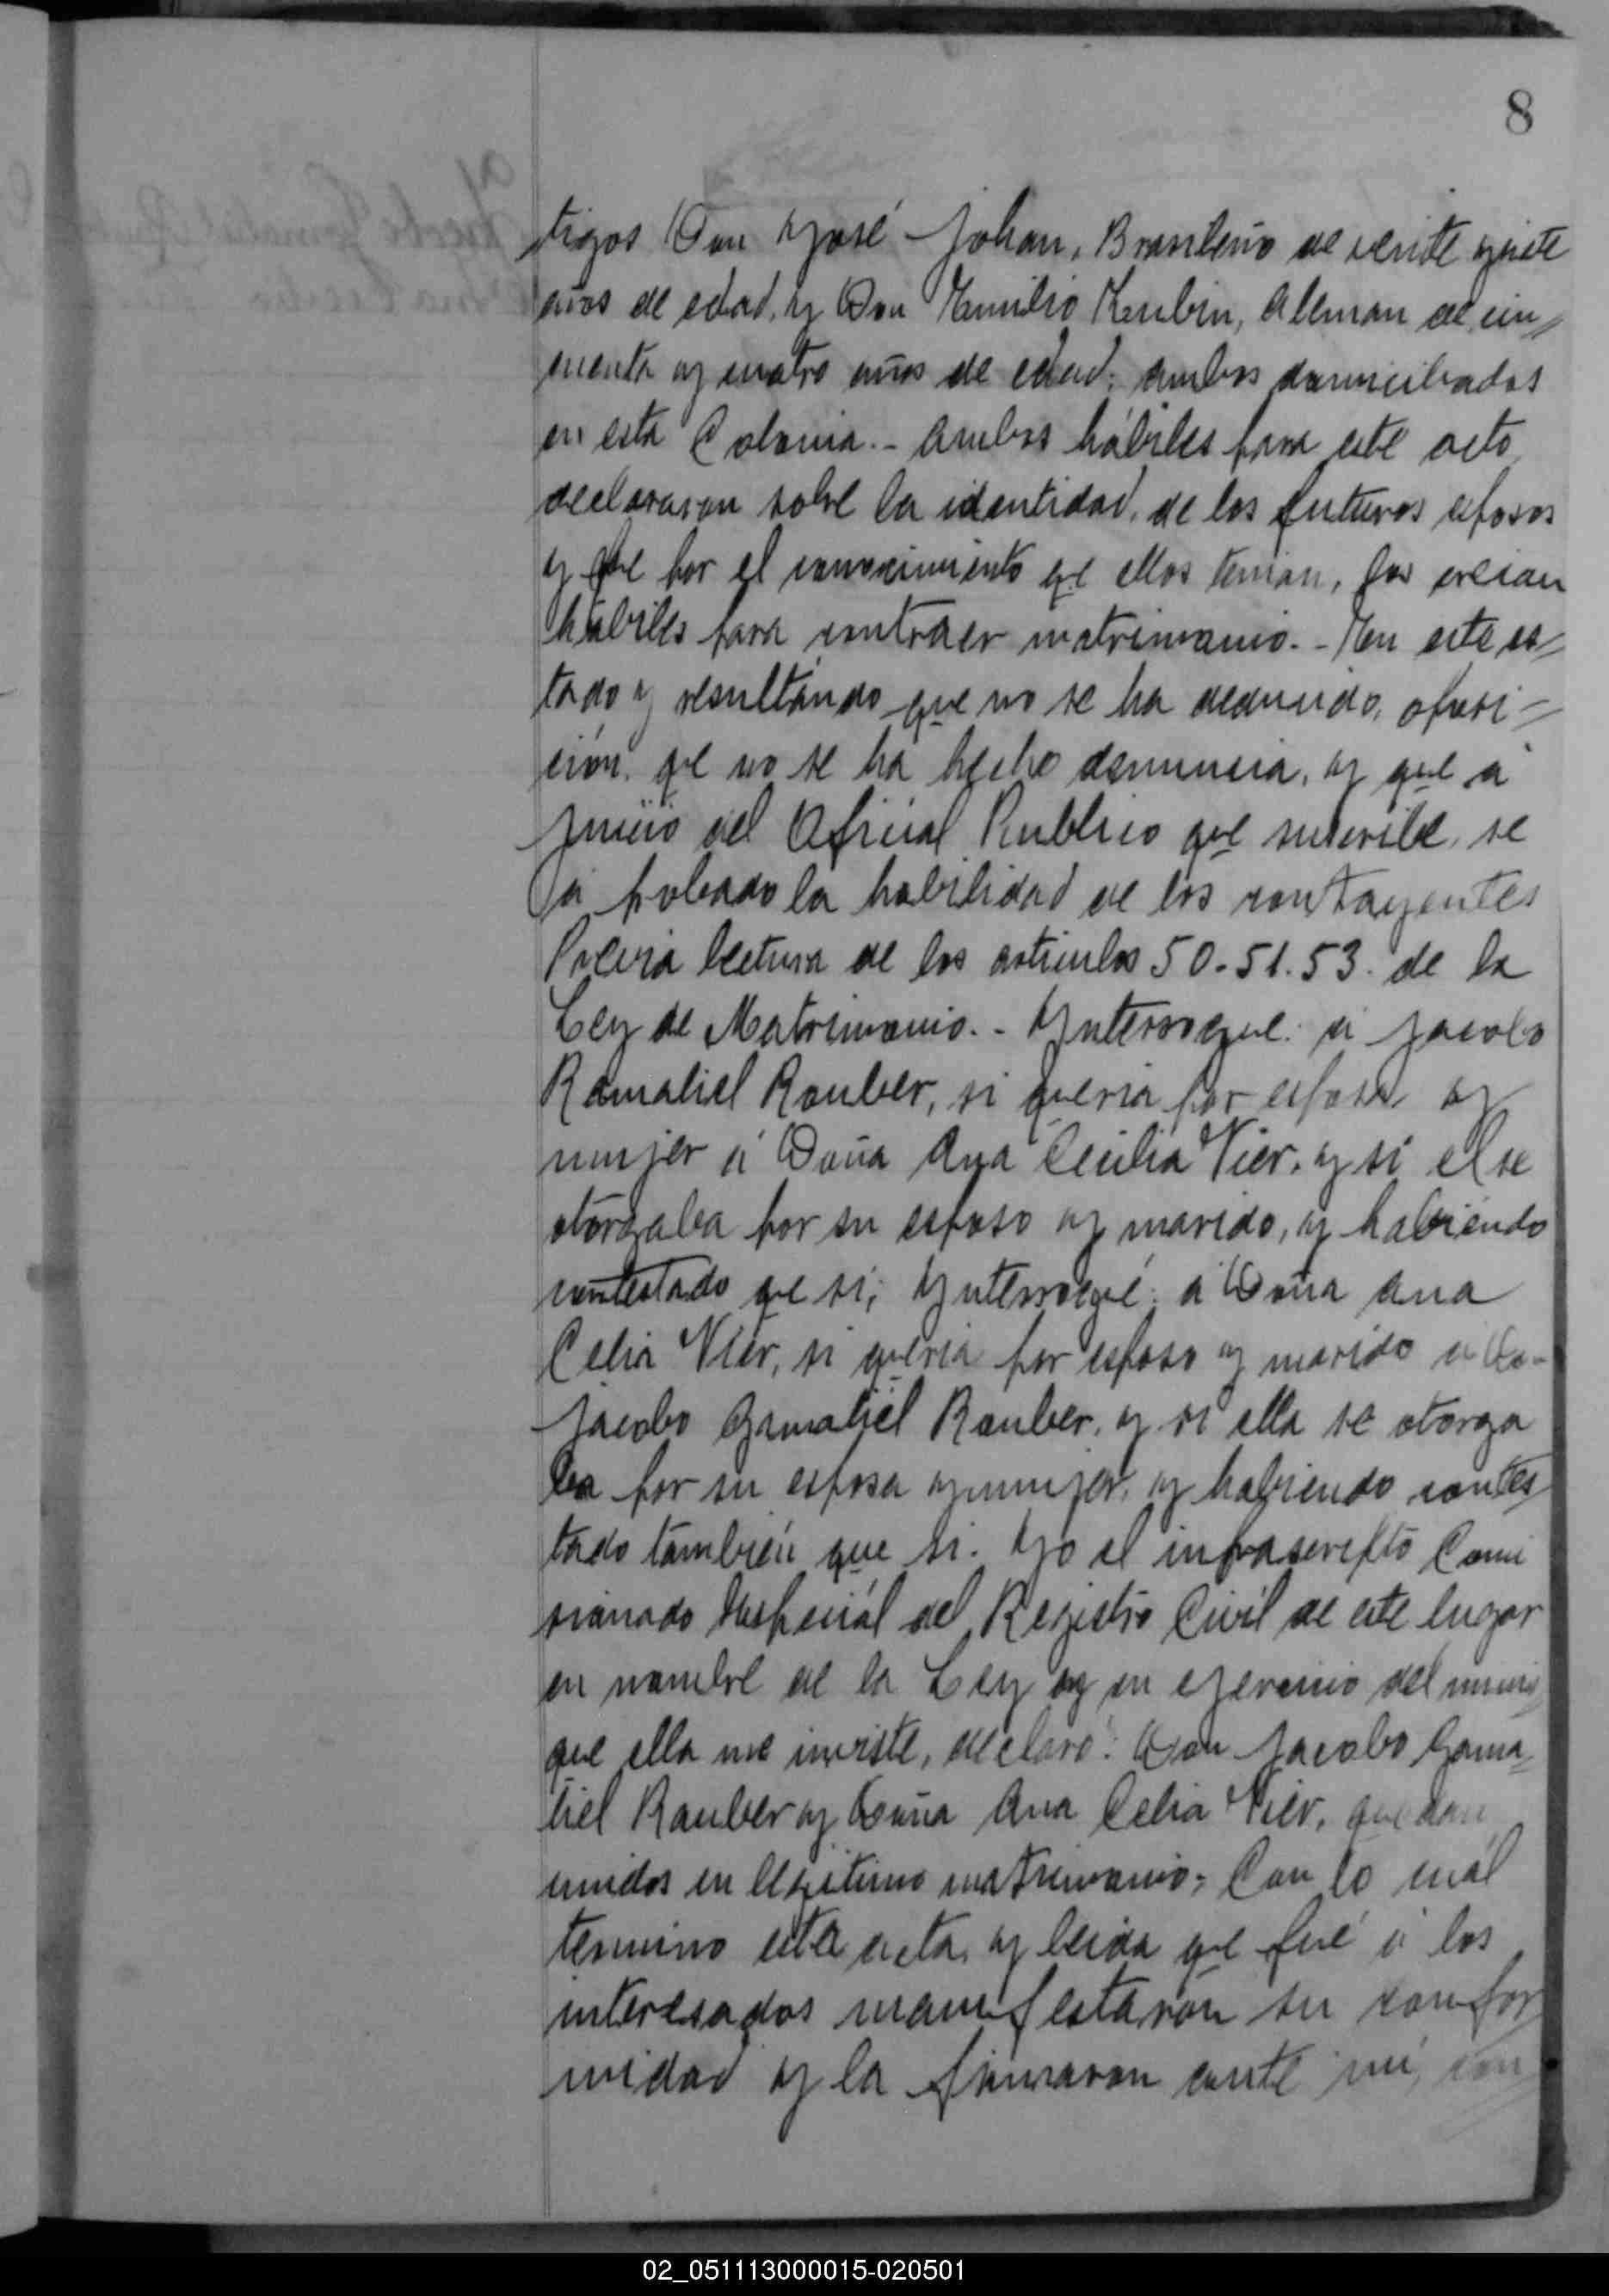 8
tigos Don José Johan, Brasileño de veinte y siete
años de edad, y Don Emilio Kerubin, Aleman de cin=
cuenta y cuatro años de edad; ambos domiciliados
en esta Colonia.- Ambos hábiles para este acto
declararon sobre la identidad, de los futuros esposos
y que por el conocimiento que ellos tenian, los creian
hábiles para contraer matrimonio.- En este es=
tado y resultando que no se ha deducido, oposi=
ción, que no se ha hecho denuncia, y que á
juicio del Oficial Publico que suscribe, se
á probado la habilidad de los contrayentes
Previa lectura de los articulos 50.51.53. de la
Ley de Matrimonio.- Ynterrogue: á Jacobo
Ramaliel Rauber, si queria por esposa y
mujer á Doña Ana Cecilia Vier, y si el se
otorgaba por su esposo y marido, y habiendo
contestado que si; Ynterrogué: á Doña Ana
Celia Vier, si queria por esposo y marido á Do-
Jacobo Gamaliel Rauber, y si ella se otorga
ba por su esposa y mujer, y habiendo contes
tado también que si. Yo el infrascripto Comi
sionado Especiál del Registro Civil de este lugar
en nombre de la Ley y en ejercicio del
que ella me inviste, declaro: Don Jacobo Gama=
liel Rauber y Doña Ana Celia Vier, quedan
unidos en legitimo matrimonio; Con lo cuál
termino esta acta, y leida que fué á los
interesados manifestaron su confor
midad y la firmaron ante mi, con
02_051113000015-020501